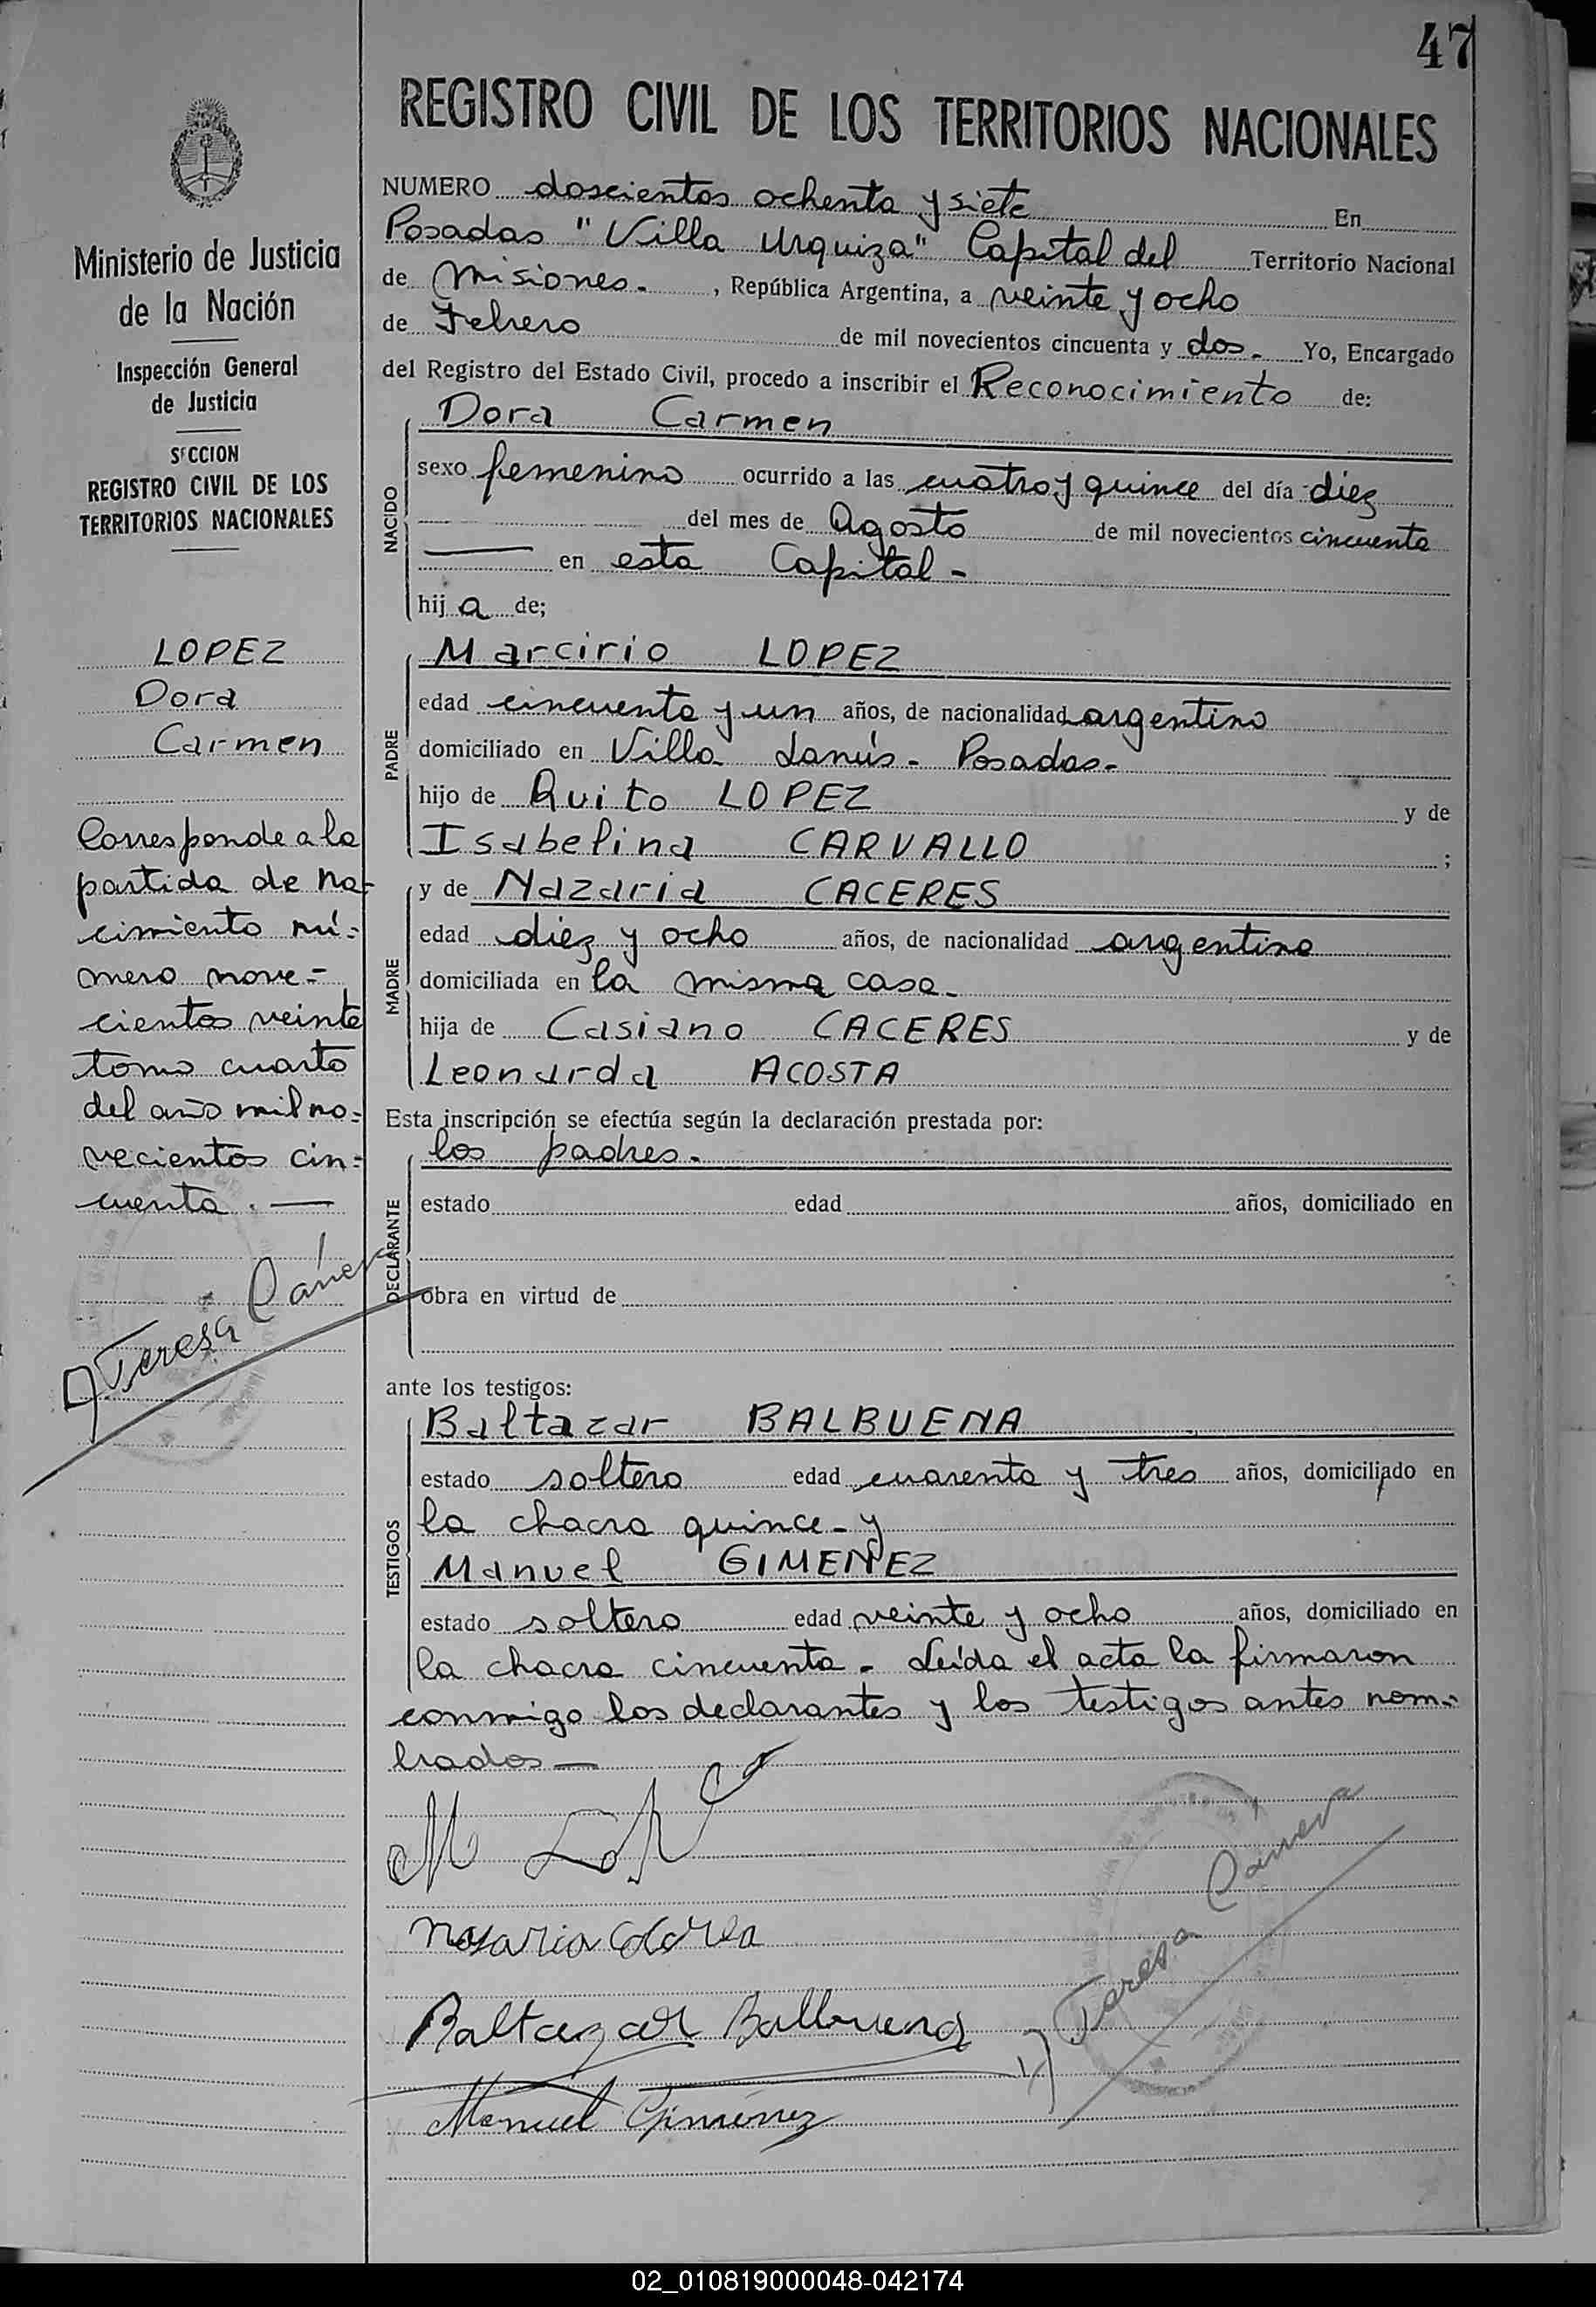 47
REGISTRO CIVIL DE LOS TERRITORIOS NACIONALES
Ministerio de Justicia
de la Nación
Inspección General
de Justicia
SECCION
REGISTRO CIVIL DE LOS
TERRITORIOS NACIONALES
LOPEZ
Dora
Carmen
Corresponde a la
partida de na-
cimiento nú-
mero nove-
cientos veinte
tomo cuarto
del año mil no-
vecientos cin-
cuenta . —
Teresa Cánera
NUMERO doscientos ochenta y siete En
Posadas "Villa Urquiza" Capital del Territorio Nacional
de Misiones. , República Argentina, a veinte y ocho
de Febrero de mil novecientos cincuenta y dos. Yo, Encargado
del Registro del Estado Civil, procedo a inscribir el Reconocimiento de:
NACIDO
Dora Carmen
sexo femenino ocurrido a las cuatro y quince del día diez
del mes de Agosto de mil novecientos cincuenta
— en esta Capital -
hij a de;
PADRE
Marcirio LOPEZ
edad cincuenta y un años, de nacionalidad argentino
domiciliado en Villa Lanús - Posadas-
hijo de Quito LOPEZ y de
Isabelina CARVALLO ;
MADRE
y de Nazaria CACERES
edad diez y ocho años, de nacionalidad argentina
domiciliada en la misma casa-
hija de Casiano CACERES y de
Leonarda ACOSTA
Esta inscripción se efectúa según la declaración prestada por:
DECLARANTE
los padres.
estado edad años, domiciliado en
obra en virtud de
ante los testigos:
TESTIGOS
Baltazar BALBUENA
estado soltero edad cuarenta y tres años, domiciliado en
la chacra quince - y
Manuel GIMENEZ
estado soltero edad veinte y ocho años, domiciliado en
la chacra cincuenta - Leída el acta la firmaron
conmigo los declarantes y los testigos antes nom-
brados —
Baltazar Balbuena
Teresa Cánera
Manuel Gimenez
02_010819000048-042174